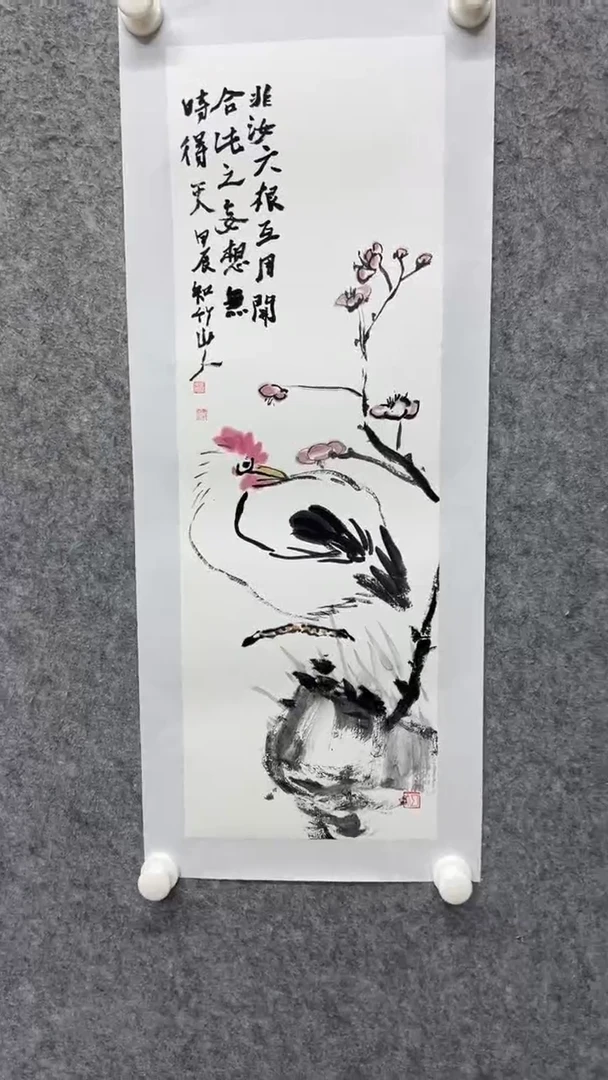 非汝六根互用開
合此之妄想無
時得灭 甲辰知竹山人